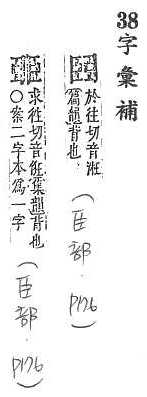 38字彙補
於往切音汪
篇韻背也
(臣部.P176)
求往切音俇集韻背也
○案二字本爲一字
(臣部.P176)